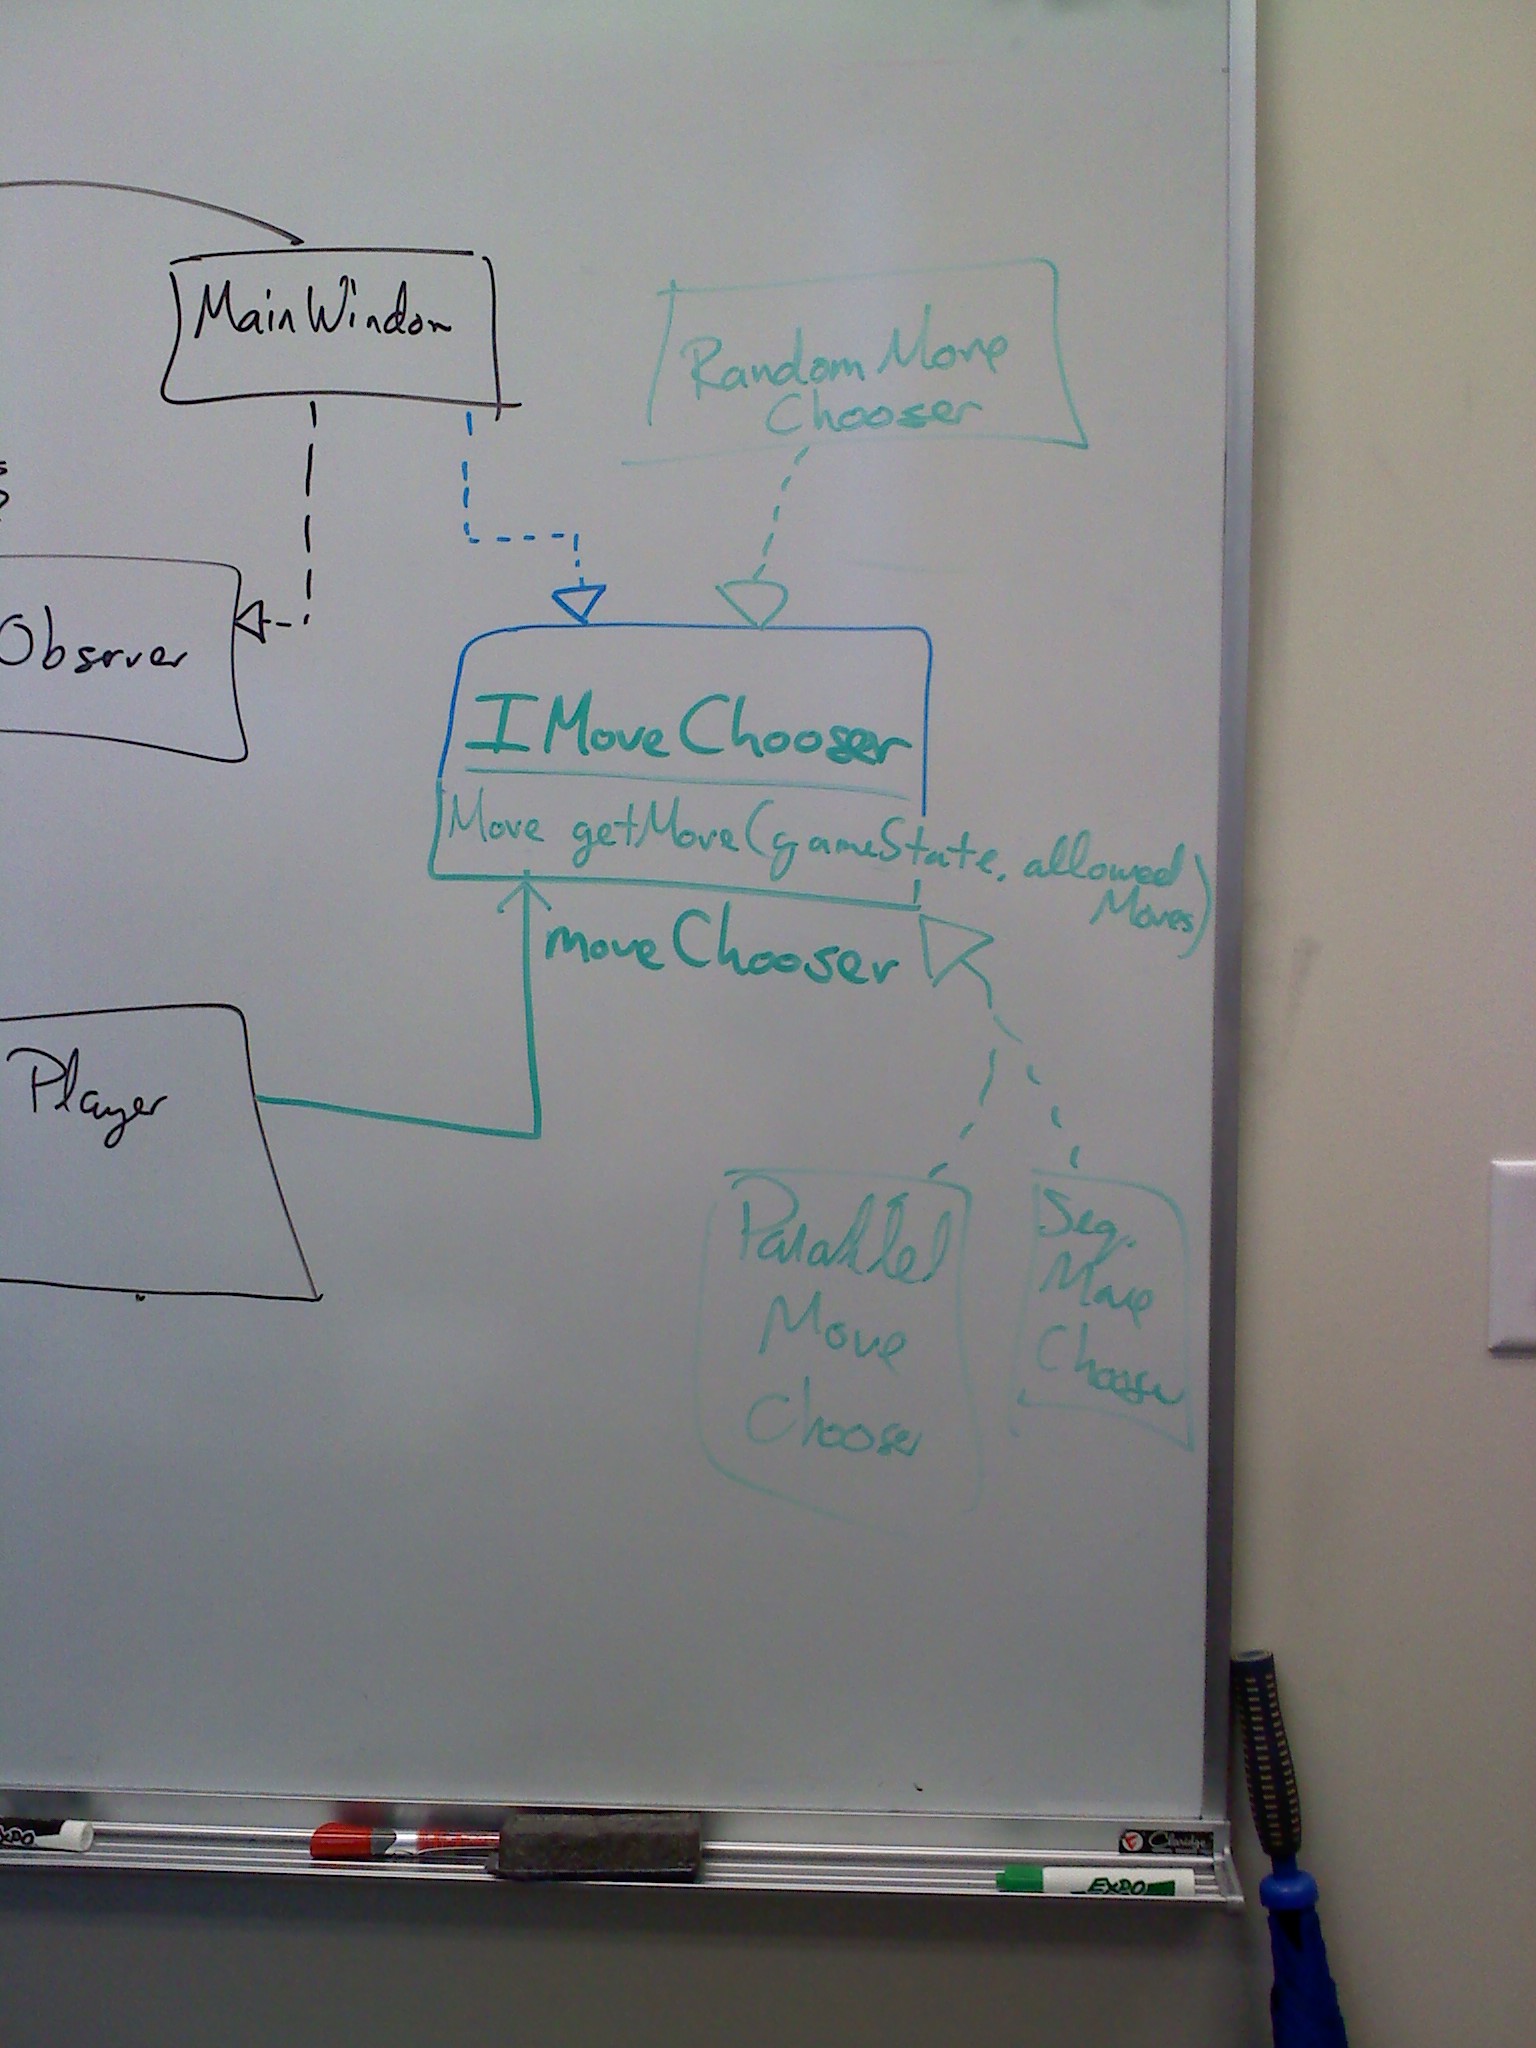 MainWindow
RandomMove
Chooser
Observer
IMoveChooser
Move getMove(gameState, allowed
Moves)
moveChooser
Player
Parallel
Move
Chooser
Seq.
Move
Chooser
Claridge
EXPO